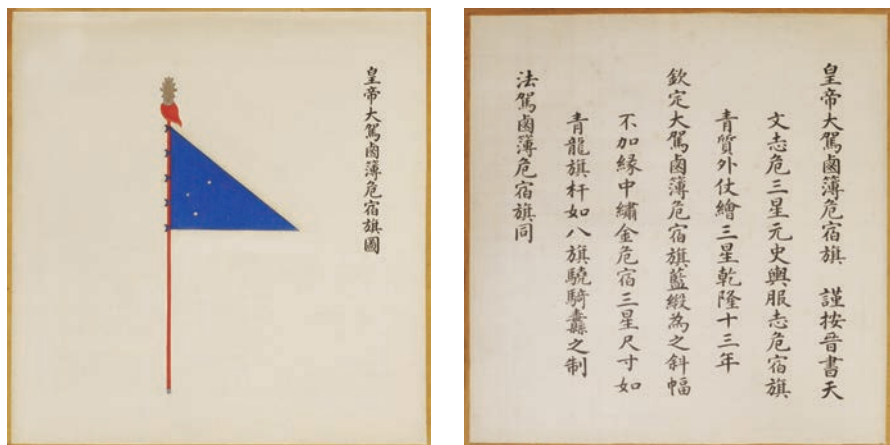 皇帝大駕鹵簿危宿旗圖
皇帝大駕鹵簿危宿旗　謹按晉書天
文志危三星元史輿服志危宿旗
青質外仗繪三星乾隆十三年
欽定大駕鹵簿危宿旗藍緞為之斜幅
不加緣中繡金危宿三星尺寸如
青龍旗杆如八旗驍騎纛之制
法駕鹵簿危宿旗同